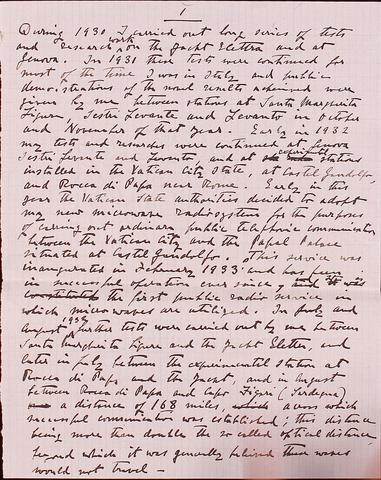 1
During 1930 I carried out long series of tests
and research work on the Yacht Elettra and at
Genova. In 1931 these tests were continued for
most of the time I was in Italy and public
demonstrations of the novel results achieved were
given by me between stations at Santa Margherita
Ligure, Sestri Levante and Levanto in October
and November of that year. Early in 1932
my tests and researches were continued at Genova
Sestri Levante and Levanto, and at experimental stations
installed in the Vatican City State, at Castel Gandolfo,
and Rocca di Papa near Rome. Early in this
year the Vatican State authorities decided to adopt
my new microwave radio system for the purposes
of carrying out ordinary public telephonic communication
between the Vatican City and the Papal Palace
situated at Castel Gandolfo. This service was
inaugurated in February 1933 and has been
in successful operation ever since, and it was
constituted the first public radio service in
which microwaves are utilized. In July and
August 1932 further tests were carried out by me between
Santa Margherita Ligure and the Yacht Elettra, and
later in July between the experimental station at
Rocca di Papa and the Yacht, and in August
between Rocca di Papa and Capo Figari (Sardegna)
a distance of 168 miles, which across which
successful communication was established; this distance
being more than double the so called optical distance,
beyond which it was generally believed these waves
would not travel —